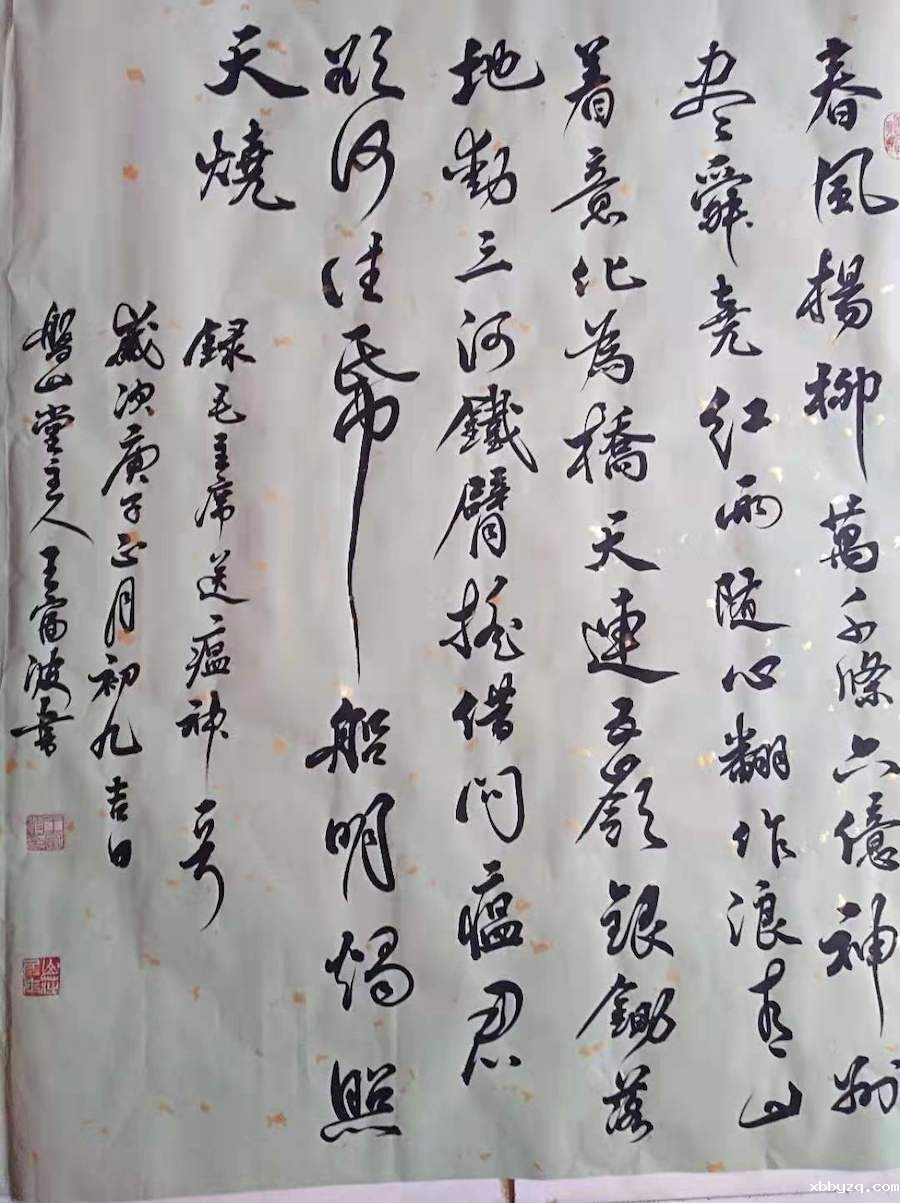 春風楊柳萬千條六億神州
尽舜堯紅雨隨心翻作浪青山
着意化為橋天連五嶺銀鋤落
地動三河鐵臂搖借問瘟君
欲何往帋船明燭照
天燒
録毛主席送瘟神一首
歲次庚子正月初九吉日
盤山堂主人王富波書
xbbyzq.com